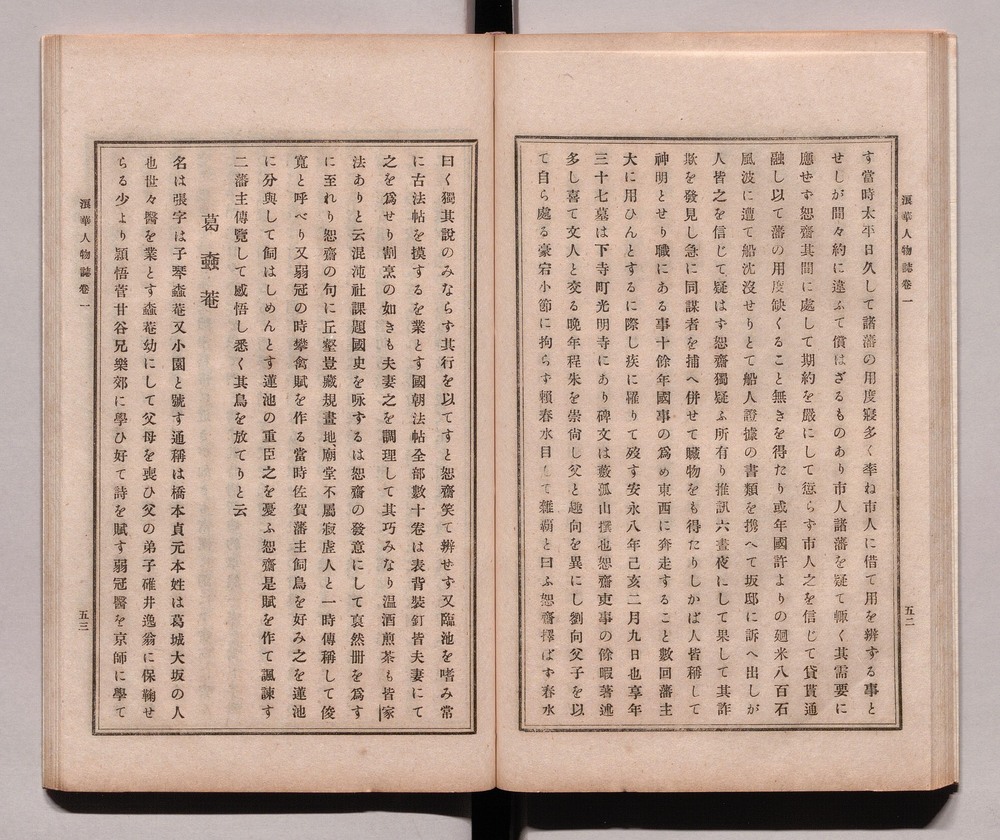 浪華人物誌卷一
す當時太平日久して諸藩の用度寢多く率ね市人に借て用を辨する事と
せしが間々約に違ふて償はざるものあり市人諸藩を疑て輙く其需要に
應せず恕齋其間に處して期約を嚴にして愆らす市人之を信じて貸貰通
融し以て藩の用度缺くること無きを得たり或年國許よりの廻米八百石
風波に遭て船沈沒せりとて船人證據の書類を携へて坂邸に訴へ出しが
人皆之を信じて疑はす恕齋獨疑ふ所有り推訊六晝夜にして果して其詐
欺を發見し急に同謀者を捕へ併せて贓物をも得たりしかば人皆稱して
神明とせり職にある事十餘年國事の爲め東西に奔走すること數回藩主
大に用ひんとするに際し疾に罹りて歿す安永八年己亥二月九日也享年
三十七墓は下寺町光明寺にあり碑文は藪孤山撰也恕齋吏事の餘暇著述
多し喜て文人と交る晩年程朱を崇尙し父と趣向を異にし劉向父子を以
て自ら處る豪宕小節に拘らず賴春水目して雜覇と曰ふ恕齋擇ばず春水
五二
曰く獨其說のみならす其行を以てすと恕齋笑て辨せす又臨池を嗜み常
に古法帖を摸するを業とす國朝法帖全部數十卷は表背裝釘皆夫妻にて
之を爲せり割烹の如きも夫妻之を調理して其巧みなり温酒煎茶も皆家
法ありと云混沌社課題國史を咏するは恕齋の發意にして裒然冊を爲す
に至れり恕齋の句に丘壑豈藏規畫地廟堂不屬寂虛人と一時傳稱して俊
寬と呼べり又弱冠の時攀禽賦を作る當時佐賀藩主飼鳥を好み之を蓮池
に分與して飼はしめんとす蓮池の重臣之を憂ふ恕齋是賦を作て諷諫す
二藩主傳覽して感悟し悉く其鳥を放てりと云
葛蠧菴
名は張字は子琴蠧菴又小園と號す通稱は橋本貞元本姓は葛城大坂の人
也世々醫を業とす蠧菴幼にして父母を喪ひ父の弟子碓井逸翁に保鞠せ
らる少より穎悟菅甘谷兄樂郊に學ひ好て詩を賦す弱冠醫を京師に學て
浪華人物誌卷一
五三